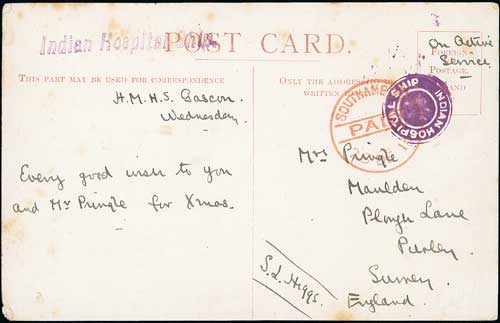 Indian Hospital Ship.
POST CARD.
On Active
Service
FOREIGN
POSTAGE.
THIS PART MAY BE USED FOR CORRESPONDENCE
ONLY THE ADDRESS
WRITTEN
H.M.H.S. Gascon.
Wednesday.
SOUTHAMP
PAI
INDIAN HOSPITAL SHIP
Every good wish to you
and Mr Pringle for Xmas.
Mrs Pringle
Maulden
Plough Lane
Purley.
Surrey.
England.
S. L. Higgs.